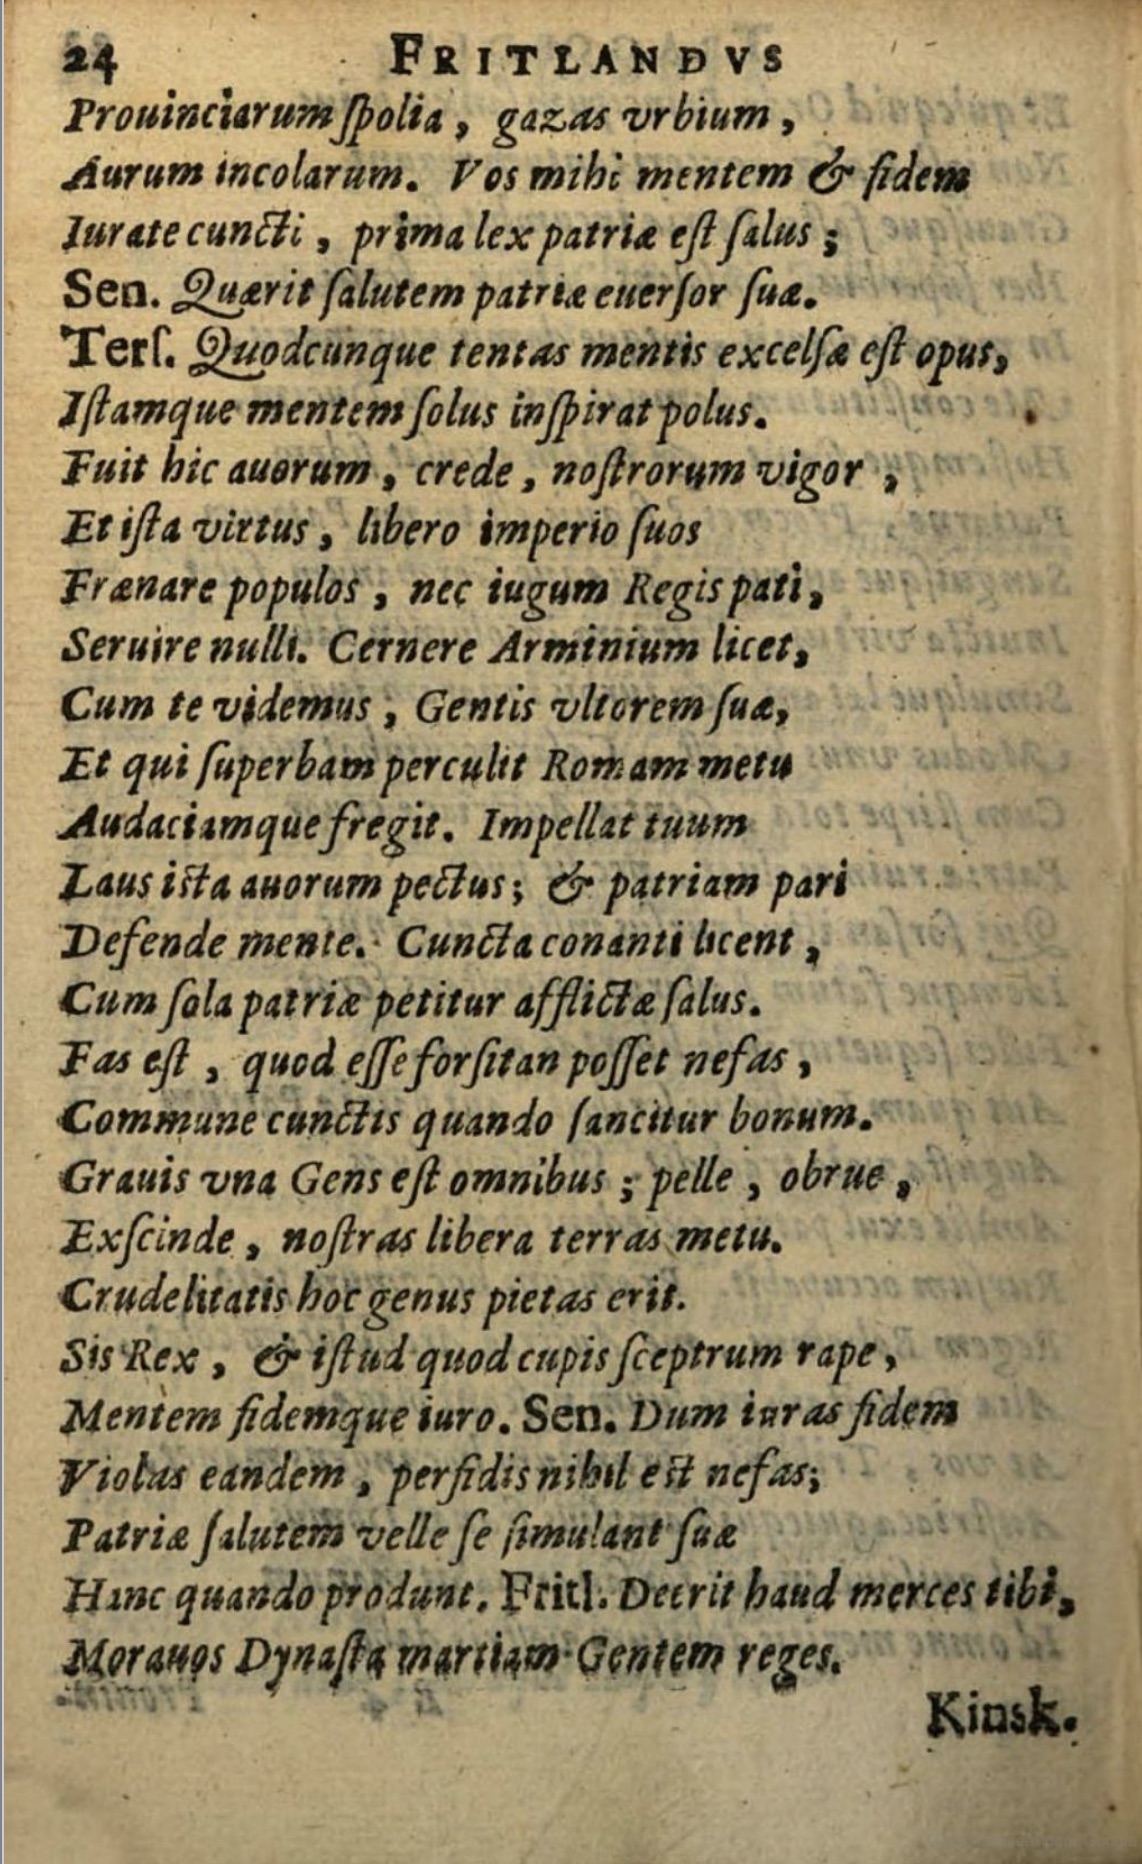 24 FRITLANDVS
Prouinciarum ſpolia, gazas vrbium,
Aurum incolarum. Vos mihi mentem & fidem
Iurate cuncti, prima lex patriæ eſt ſalus;
Sen. Quærit ſalutem patriæ euerſor ſuæ.
Terſ. Quodcunque tentas mentis excelſæ eſt opus,
Iſtamque mentem ſolus inſpirat polus.
Fuit hic auorum, crede, noſtrorum vigor,
Et iſta virtus, libero imperio ſuos
Frænare populos, nec iugum Regis pati,
Seruire nulli. Cernere Arminium licet,
Cum te videmus, Gentis vltorem ſuæ,
Et qui ſuperbam perculit Romam metu
Audaciamque fregit. Impellat tuum
Laus iſta auorum pectus; & patriam pari
Defende mente. Cuncta conanti licent,
Cum ſola patriæ petitur afflictæ ſalus.
Fas eſt, quod eſſe forſitan poſſet nefas,
Commune cunctis quando ſancitur bonum.
Grauis vna Gens eſt omnibus; pelle, obrue,
Exſcinde, noſtras libera terras metu.
Crudelitatis hoc genus pietas erit.
Sis Rex, & iſtud quod cupis ſceptrum rape,
Mentem fidemque iuro. Sen. Dum iuras fidem
Violas eandem, perfidis nihil eſt nefas;
Patriæ ſalutem velle ſe ſimulant ſuæ
Hanc quando produnt. Fritl. Deerit haud merces tibi,
Morauos Dynaſta martiam Gentem reges.
Kinsk.